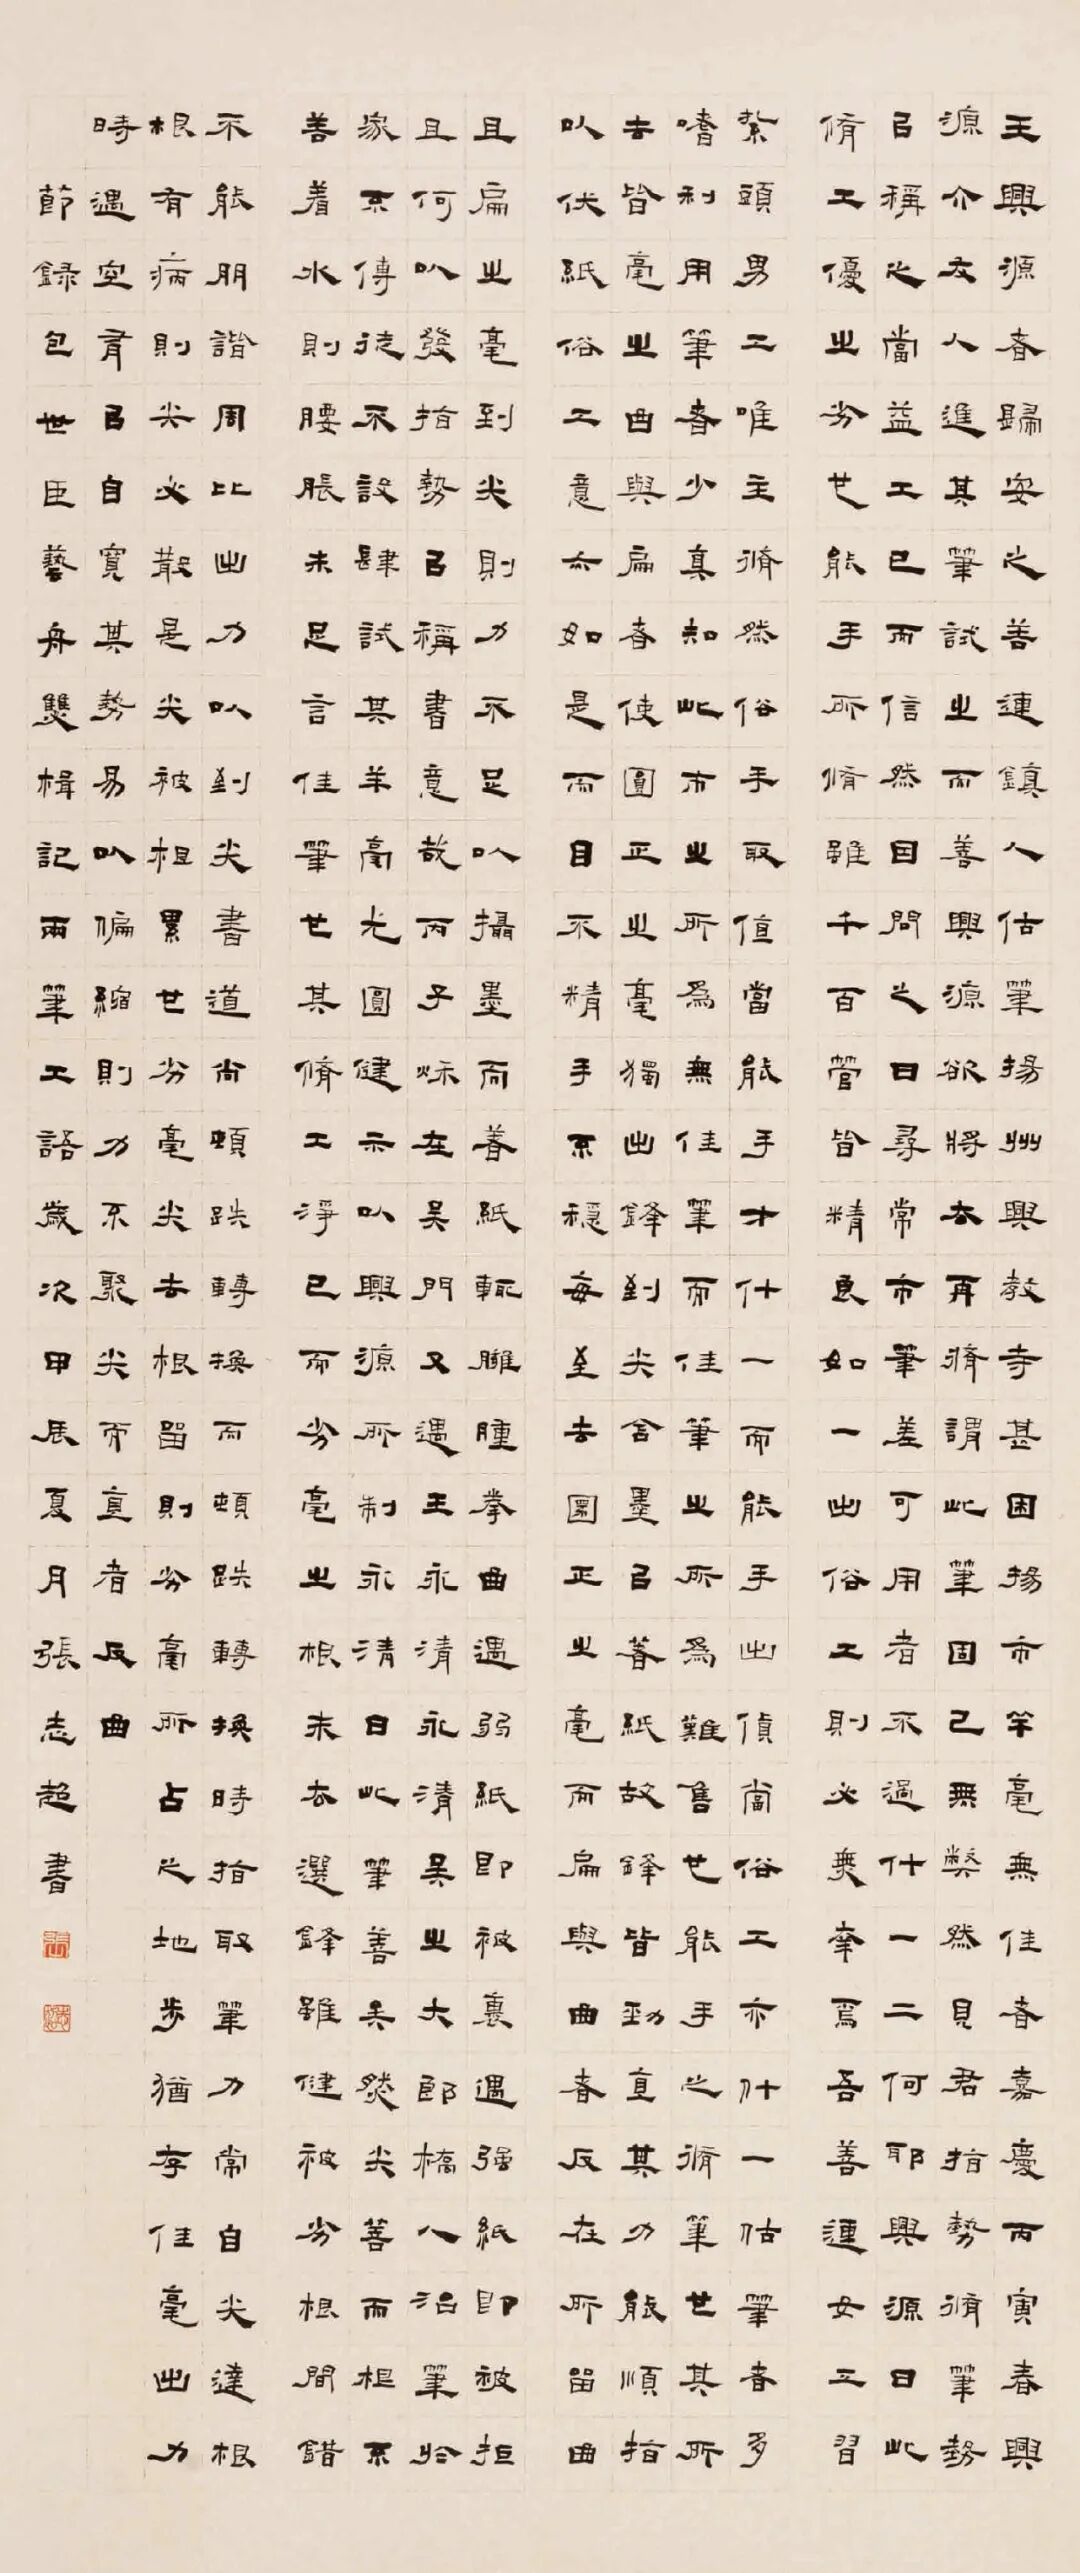 王興源者歸安之善連鎮人估筆揚州興教寺甚困揚市羊毫無佳者嘉慶丙寅春興
源介友人進其筆試之而善興源欲將去再脩謂此筆固已無弊然見君指勢脩筆勢
㠯稱之當益工已而信然因問之曰尋常市筆差可用者不過什一二何耶興源曰此
脩工優之劣也能手所脩雖千百管皆精良如一出俗工則必無幸焉吾善連女工習
紮頭男工唯主脩然俗手取值當能手才什一而能手出值當俗工亦什一估筆者多
嗜利用筆者少真知此市之所爲無佳筆而佳筆之所爲難售也能手之脩筆也其所
去皆毫之曲與扁者使圓正之毫獨出鋒到尖含墨㠯着紙故鋒皆勁直其力能順指
以伏紙俗工意亦如是而目不精手不穩每至去圓正之毫而扁與曲者反在所留曲
且扁之毫到尖則力不足以攝墨而着紙輒臃腫拳曲遇弱紙即被裹遇强紙即被拒
且何以發指勢㠯稱書意哉丙子秌在吳門又遇王永清永清吳之大郎橋人治筆於
家不傳徒不設肆試其羊毫尤圓健示以興源所制永清曰此筆善矣然尖善而根不
善着水則腰脹未足言佳筆也其脩工淨已而劣毫之根未去選鋒雖健被劣根間錯
不能朋諧周比出力以到尖書道尚頓跌轉換而頓跌轉換時指取筆力常自尖達根
根有病則尖必散是尖被根累也劣毫尖去根留則劣毫所占之地步猶存佳毫出力
時遇空㠯自寬其勢易以偏縮則力不聚尖而直者反曲
節錄包世臣藝舟雙楫記兩筆工語歲次甲辰夏月張志超書